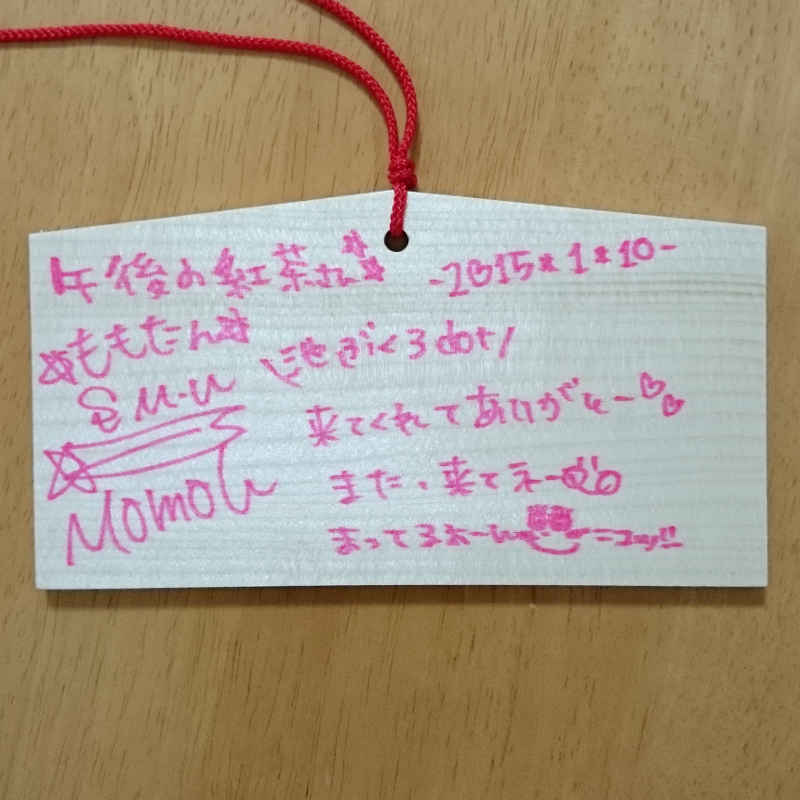 午後の紅茶さん☆☆ -2015*1*10-
☆ももたん☆
池ぶくろdot!
来てくれてありがとー♡♡
また、来てネー
まってるよーん ニコッ!!
Momoん